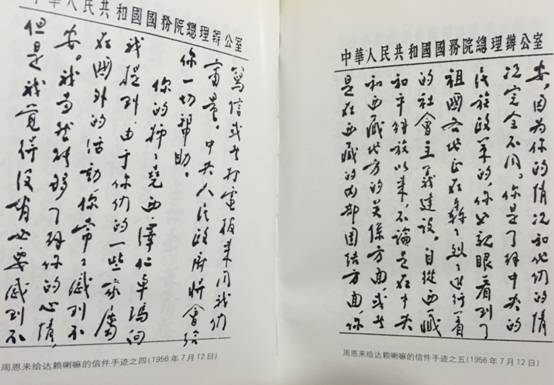 中華人民共和國國務院總理辦公室
寫信或者打電报来同我们
商量。中央人民政府將會给
你一切帮助。
你的姊姊尧西·澤仁卓瑪向
我提到,由于你们的一些家属
在國外的活動你常常感到不
安。我当然能够了解你的心情,
但是我觉得没有必要感到不
周恩来给达赖喇嘛的信件手迹之四(1956年7月12日)
中華人民共和國國務院總理辦公室
安,因为你的情况和他们的情
况完全不同。你是了解中央的
民族政策的,你也親眼看到了
祖國各地正在轰轰烈烈進行着
的社會主義建设。自從西藏
和平解放以来,不論是在中央
和西藏地方的关係方面或者
是在西藏的内部团结方面,你
周恩来给达赖喇嘛的信件手迹之五(1956年7月12日)